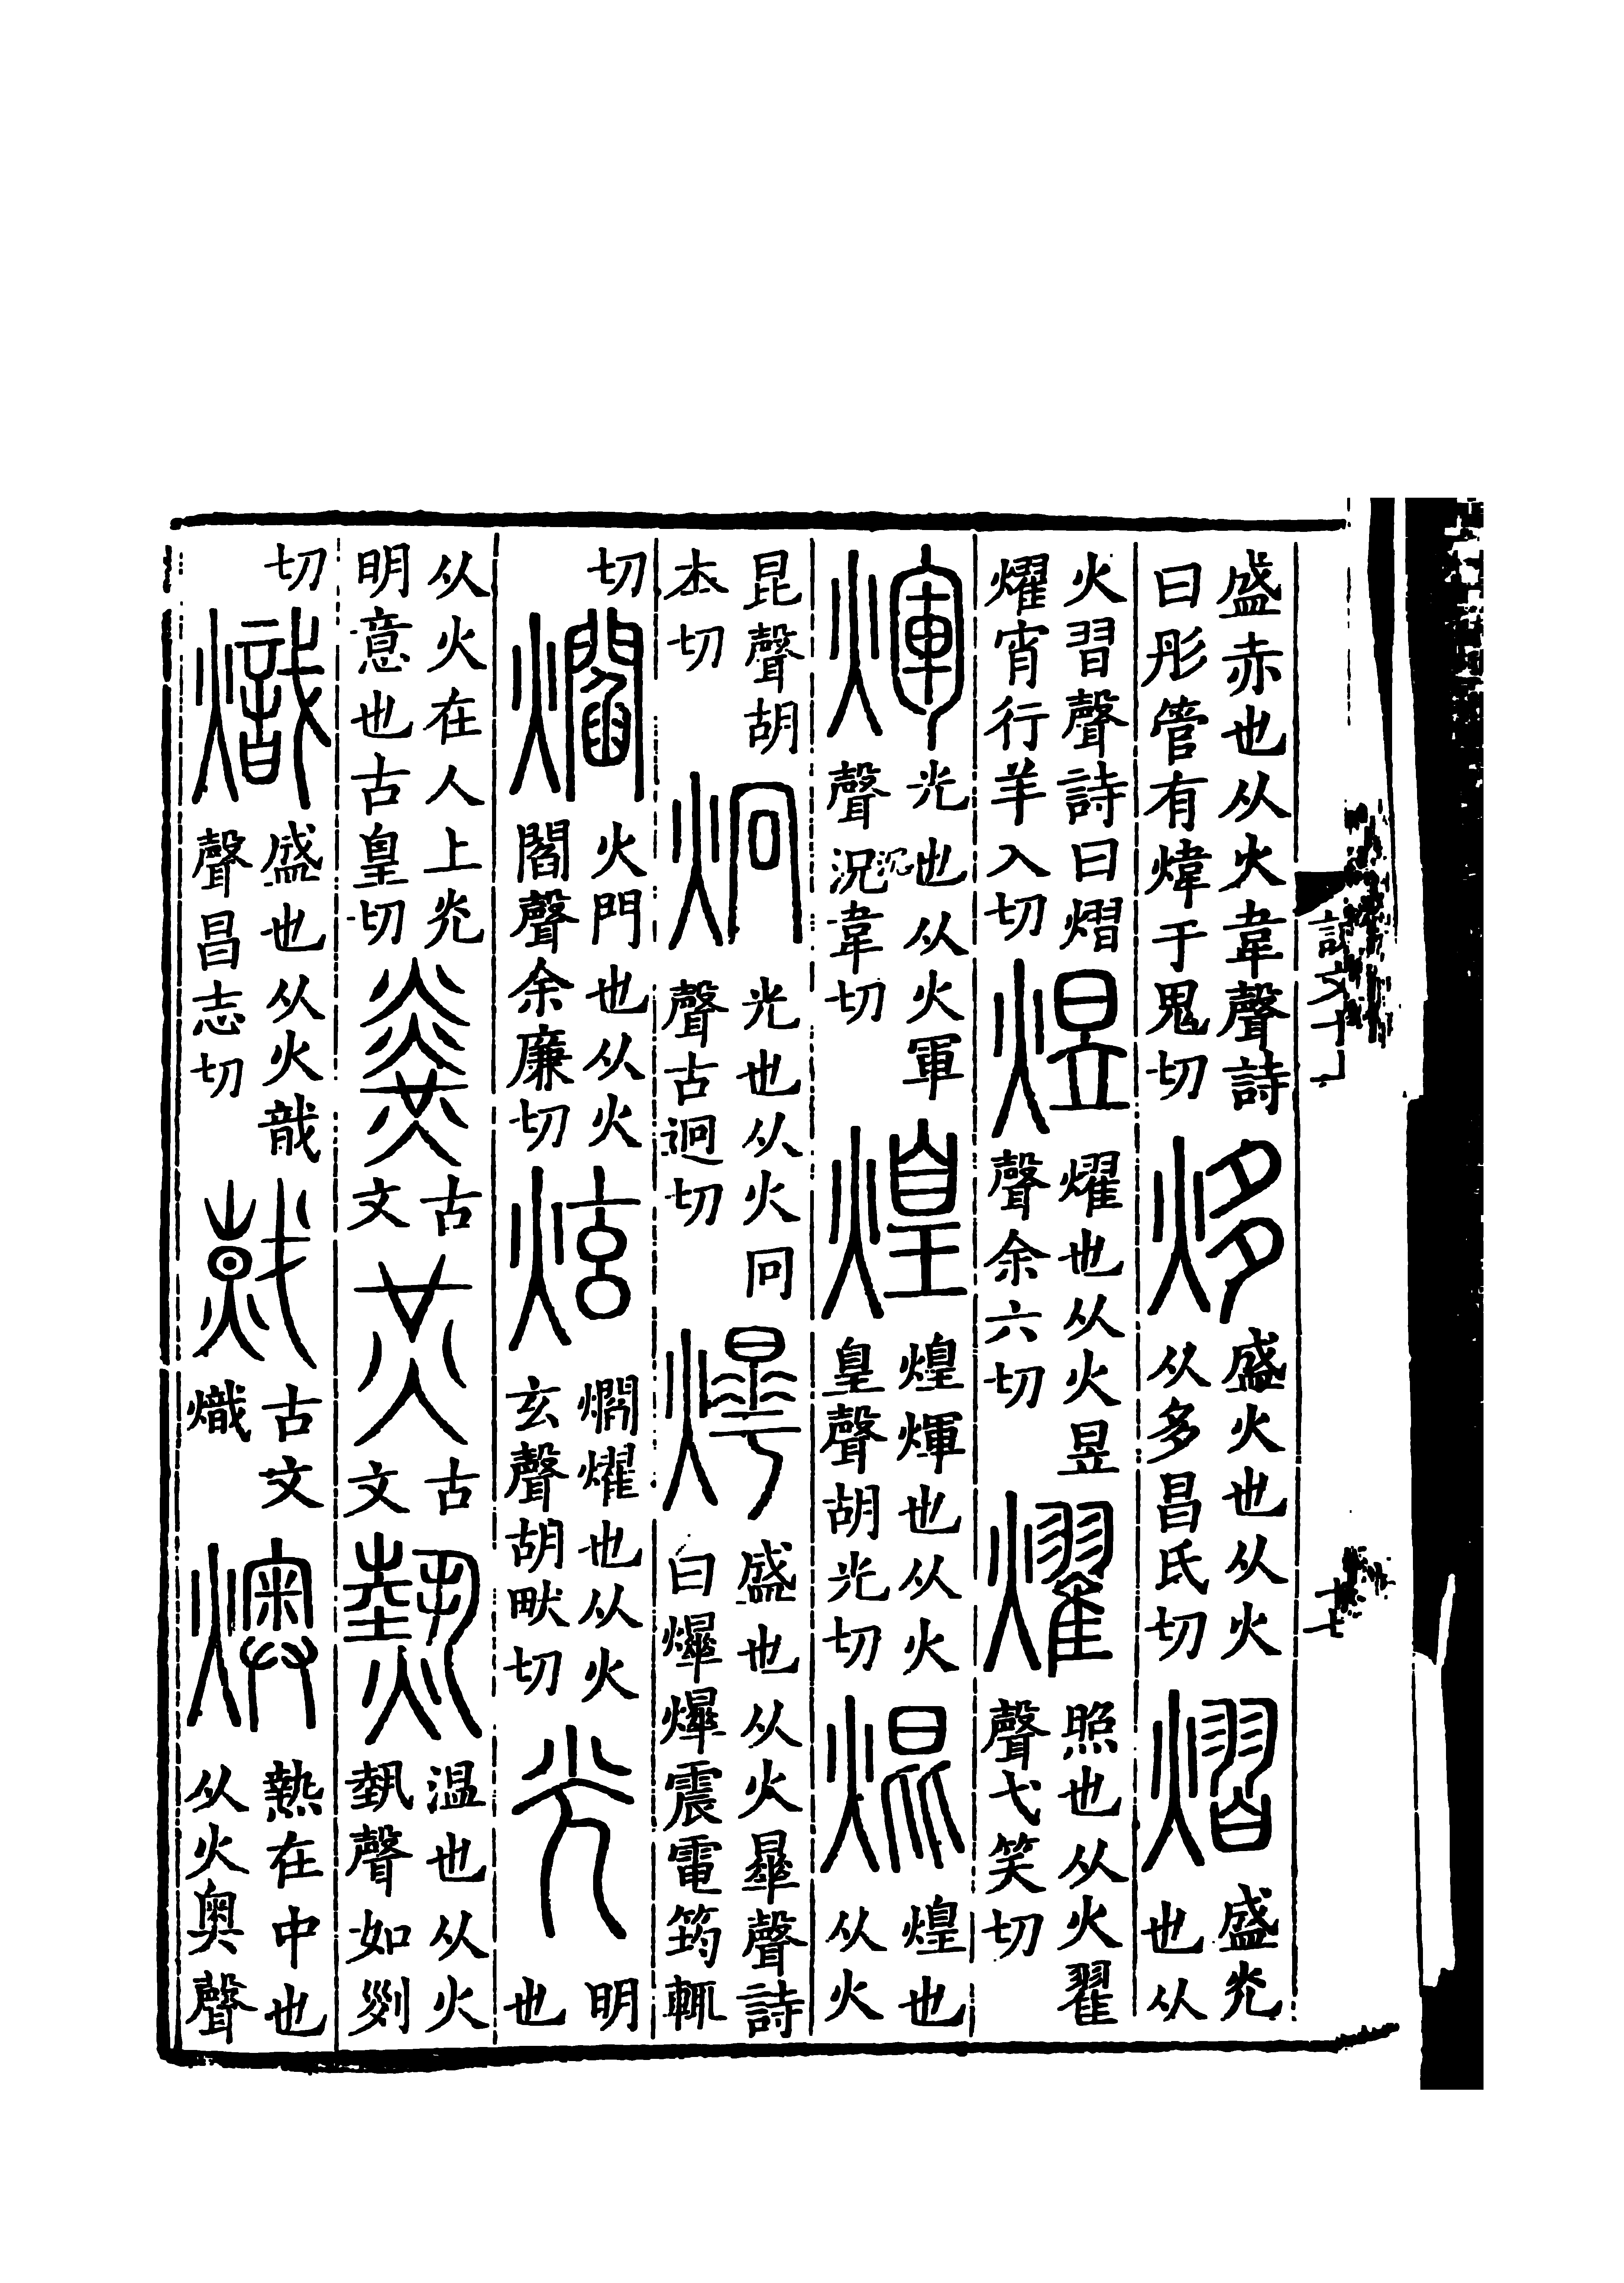 盛赤也从火韋聲詩
曰彤管有煒于鬼切
炵盛火也从火
从多昌氏切
熠盛光
也从
火習聲詩曰熠
燿宵行羊入切
煜燿也从火昱
聲余六切
燿照也从火翟
聲弋笑切
煇光也从火軍
聲況韋切
煌煌煇也从火
皇聲胡光切
焜煌也
从火
昆聲胡
本切
炯光也从火冋
聲古迥切
爗盛也从火𣊓聲詩
曰爗爗震電筠輒
切
爓火門也从火
閻聲余廉切
炫爓燿也从火
玄聲胡畎切
光明
也
从火在人上光
明意也古皇切
𤎫古
文
炗古
文
熱温也从火
埶聲如列
切
熾盛也从火戠
聲昌志切
𢧤古文
熾
燠熱在中也
从火奥聲